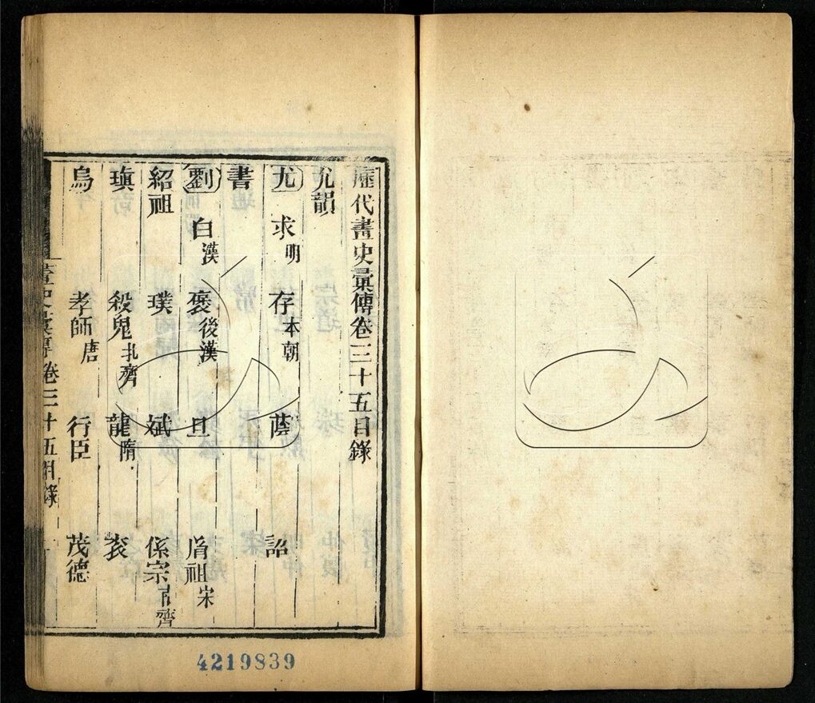 歷代畫史彙傳卷三十五目錄
尤韻
尤 求明 存本朝 蔭 詔
書
劉 白漢 褒後漢 旦 胤祖宋
紹祖 璞 斌 係宗南齊
瑱 殺鬼北齊 龍隋 袞
烏 孝師唐 行臣 茂德
畫史彙傳卷三十五目錄 一
4219839